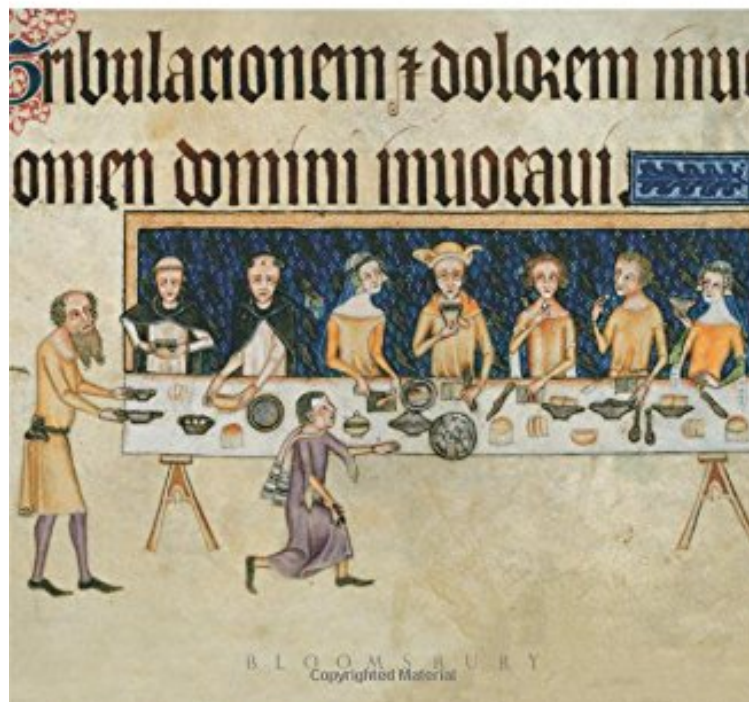 Tribulacionem ⁊ dolorem inue
omen domini inuocaui.
BLOOMSBURY
Copyrighted Material